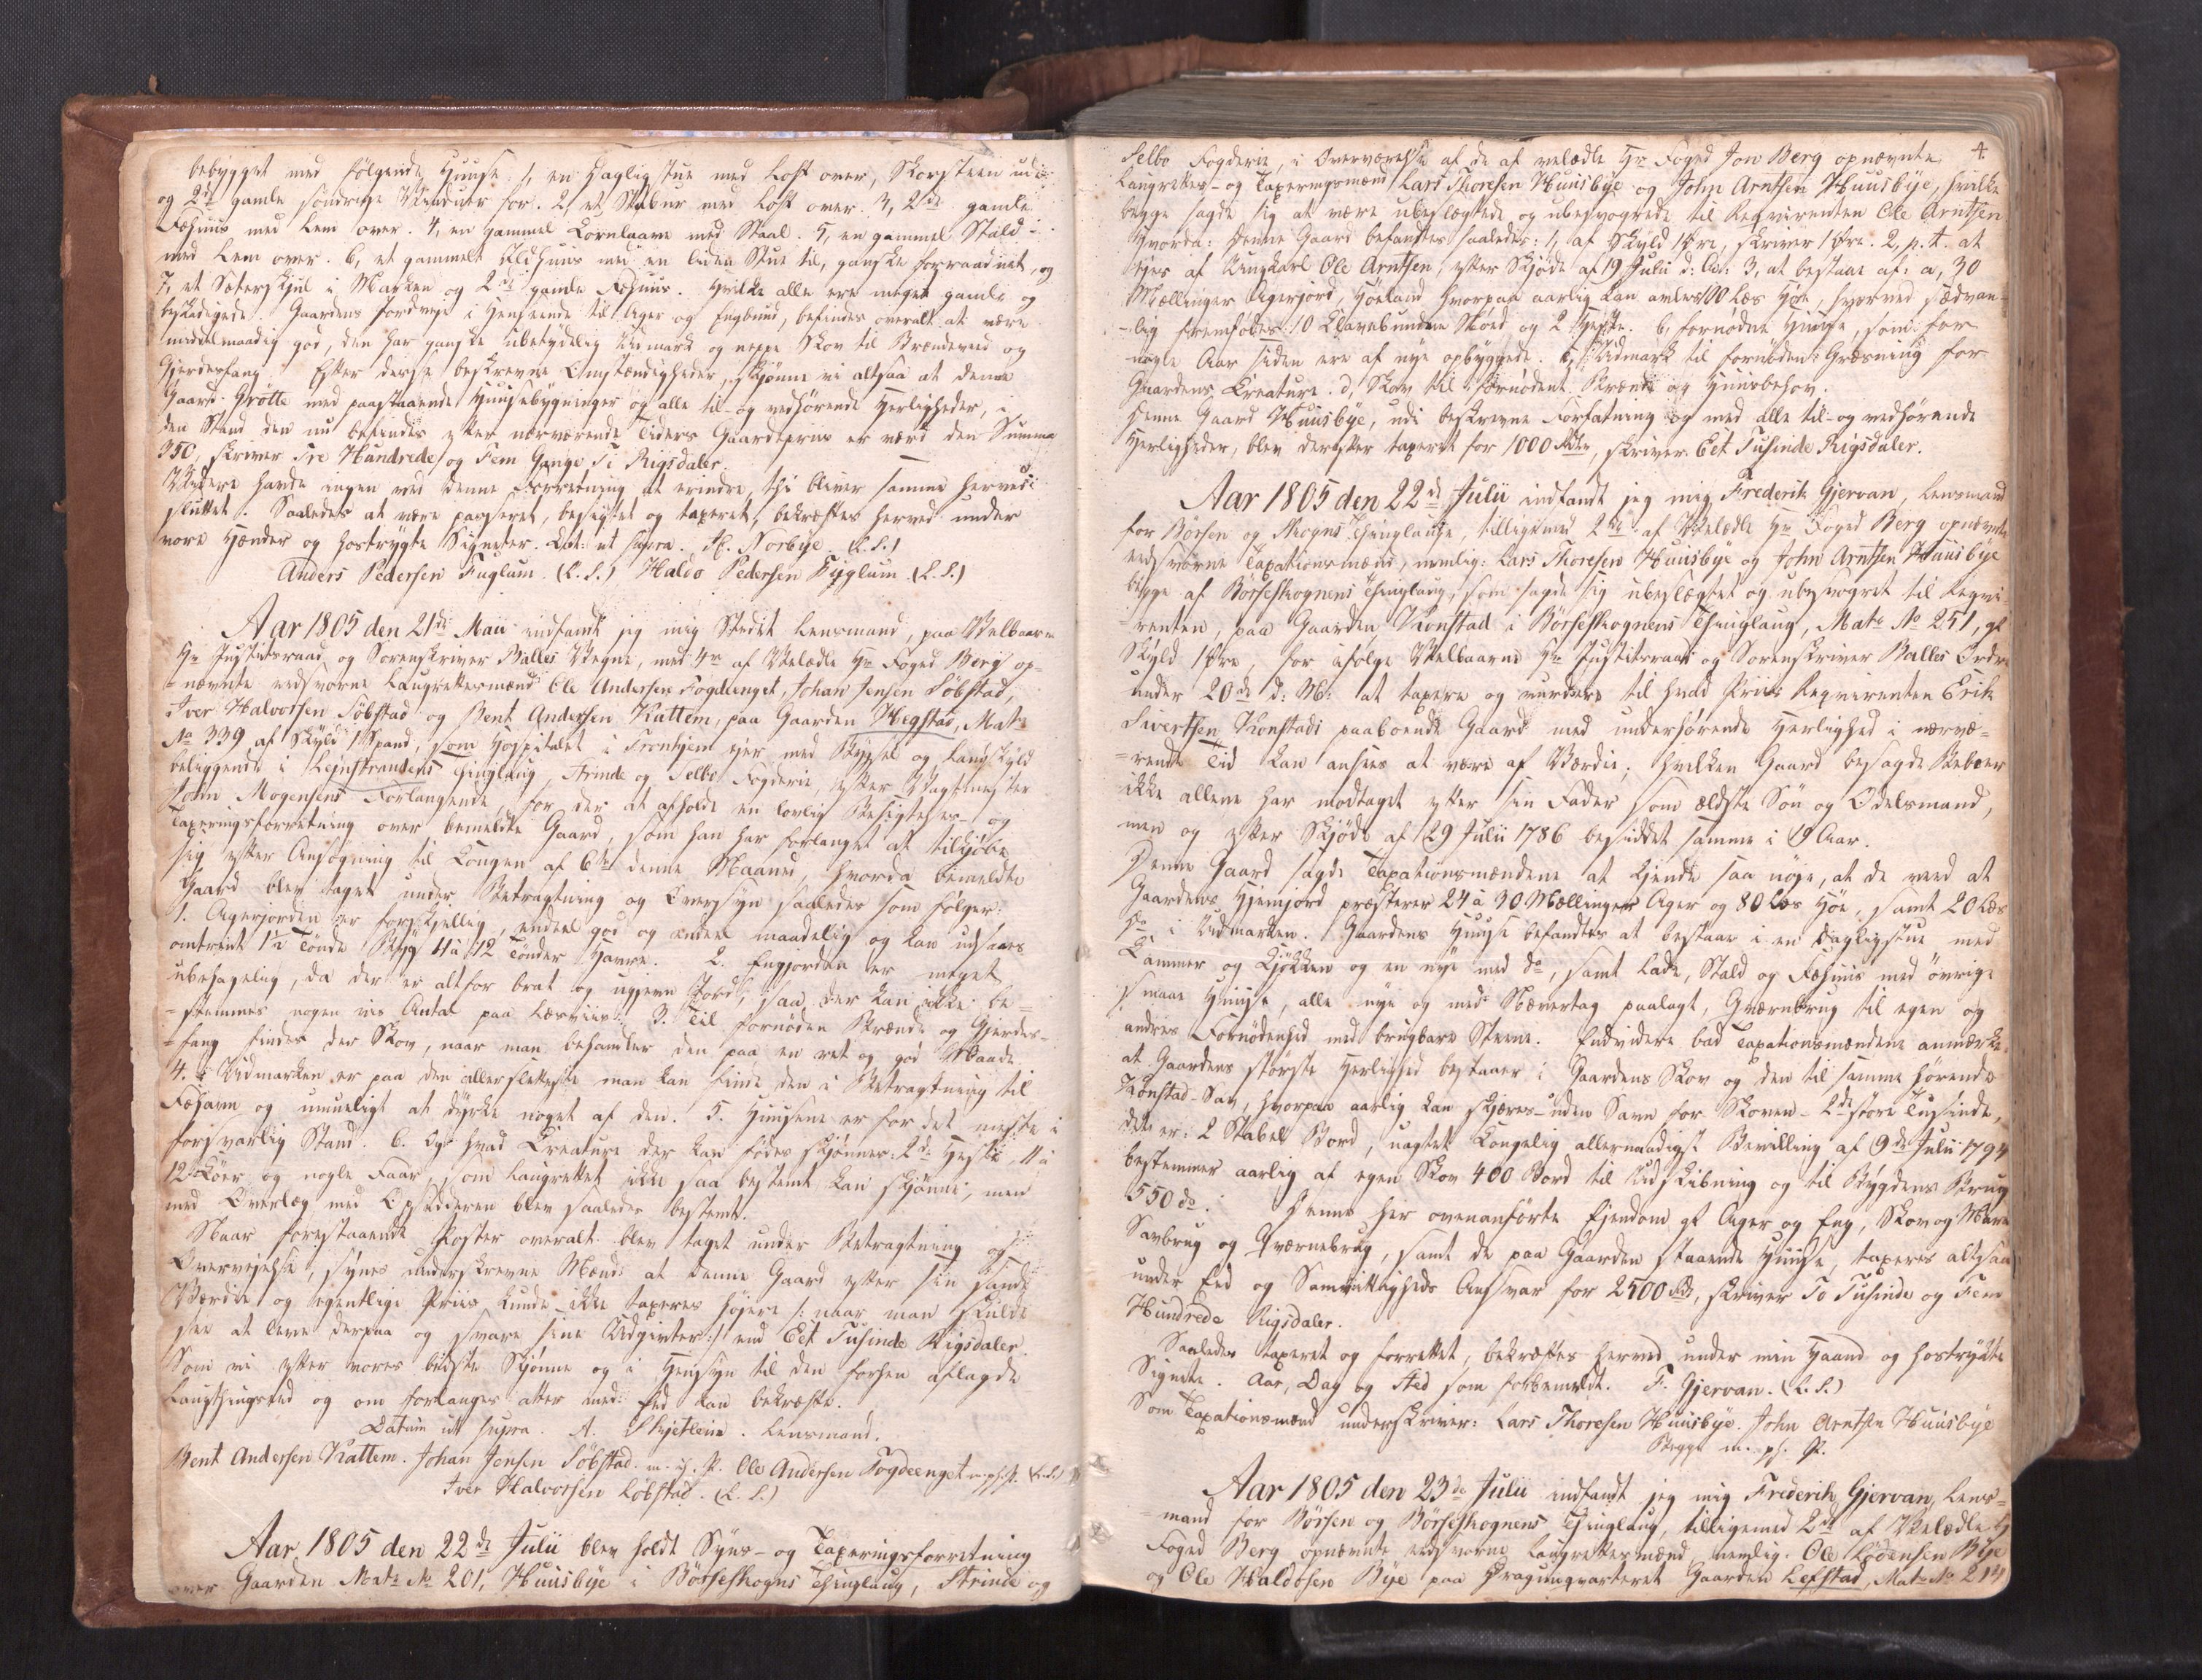 bebygget med følgende Huuse: 1, en Daglig Stue med Loft over, Skorsteen udi
og 2de gamle söndrige Vinduer for. 2, et Stabur med Loft over. 3, 2de gamle
Fæhuus med Lem over. 4, en gammel Kornlaave med Staal. 5, en gammel Stald
med Lem over. 6, et gammelt Ildhuus med en liden Stue til, ganske forraadnet, og
7, et Sæterskjul i Marken og 2de gamle Fæhuus. Hvilke alle ere meget gamle og
beskadigede. Gaardens Jordveje i Henseende til Ager og Engbund, befindes overalt at være
middelmaadig god, den har ganske ubetydelig Udmark og neppe Skov til Brændeved og
Gjerdesfang. Efter disse beskrevne Omstændigheder, skjønne vi altsaa at denne
Gaard Grötte med paastaaende Huusebygninger og alle til- og vedhörende Herligheder, i
den Stand den nu befindes efter nærværende Tiders Gaardepriis er værd den Summa
350, skriver Tre Hundrede og Fem Gange Ti Rigsdaler.
Videre havde ingen ved denne Forretning at erindre, thi bliver samme herved
sluttet. Saaledes at være passeret, besigtet og taxeret, bekræftes herved under
vore Hænder og hostrygte Signeter. Dat: ut supra. H. Norbye (L.S.)
Anders Pedersen Fuglum. (L.S.) Haldo Pedersen Fuglum. (L.S.)
Aar 1805 den 21de Maii indfandt jeg mig Stedets Lensmand, paa Velbaarne
Hr Justitsraad og Sorenskriver Balles Vegne, med 4re af Velædle Hr Foged Berg op-
=nævnte eedsvorne Laugrettesmænd Ole Andersen Fogdenget, Johan Jensen Söbstad,
Iver Halvorsen Söbstad og Bent Andersen Kattem, paa Gaarden Hegstad, Matr
No 339 af Skyld 1 Spand, som Hospitalet i Tronhjem ejer med Bygsel og Landskyld
beliggende i Lejnstrandens Thinglaug, Strinde og Selbo Fogderie, efter Vagtmester
John Mogensens Forlangende, for der at afholde en lovlig Besigtelses- og
Taxeringsforretning over bemeldte Gaard, som han har forlanget at tilkjöbe
sig efter Ansögning til Kongen af 6te denne Maaned, hvorda bemeldte
Gaard blev taget under Betragtning og Oversyn saaledes som fölger:
1. Agerjorden er forskjellig, endeel god og endeel maadelig og kan udsaaes
omtrent 1½ Tönde Byg 11 à 12 Tönder Havre. 2. Engjorden er meget
ubehagelig, da der er altfor brat og ugjevn Jord, saa der kan ikke be=
=stemmes nogen vis Antal paa Læsviis. 3. Til fornöden Brænde og Gjerdes-
=fang findes der Skov, naar man behandler den paa en ret og god Maade.
4. Udmarken er paa den allersletteste man kan finde den i Betragtning til
Fæhavn og umueligt at dyrke noget af den. 5. Huusene er for det meste i
forsvarlig Stand. 6. Og hvad Creature der kan födes skjønnes: 2de Heste, 11 à
12 Köer og nogle Faar, som Laugrettet ikke saa bestemt kan skjønne, men
med Overlæg med Opsidderen blev saaledes bestemt.
Naar forestaaende Poster overalt blev taget under Betragtning og
Overvejelse, synes underskrevne Mænd at denne Gaard efter sin sande
Værdie og egentlige Priis kunde ikke taxeres höjere /: naar man skulde
see at leve derpaa og svare sine Udgivter :/ end Eet Tusinde Rigsdaler.
Som vi efter vores bedste Skjönne og i Hensyn til den forhen aflagde
Laugthingseed og om forlanges atter med Eed kan bekræfte.
Datum ut supra. A. Skjetlein. Lensmand.
Bent Andersen Kattem. Johan Jensen Söbstad. m. p. P. Ole Andersen Fogdeenget m. p. P. (L.S.)
Iver Halvorsen Söbstad. (L.S.)
Aar 1805 den 22de Julii blev holdt Syns- og Taxeringsforretning
over Gaarden Matr No 201, Huusbye i Börseskogns Thinglaug, Strinde og
4.
Selbo Fogderie, i Overværelse af de af velædle Hr Foged Jon Berg opnævnte
Laugrettes- og Taxeringsmænd Lars Thoresen Huusbye og John Arntsen Huusbye, hvilke
begge sagde sig at være ubeslægtede og ubesvogrede til Reqvirenten Ole Arntsen
Hvorda: Denne Gaard befandtes saaledes: 1, af Skyld 1 Øre, skriver 1 Øre. 2, p. t. at
ejes af Ungkarl Ole Arntsen, efter Skjöde af 19 Julii d: A: 3, at bestaae af: a, 30
Mællinger Agerjord, Höeland hvorpaa aarlig kan avles 100 Læs Höe, hvorved sædvan-
-lig fremfödes 10 Klavebundne Nöed og 2 Heste. b, fornödne Huuse, som for
nogle Aar siden ere af nye opbyggede. c, Udmark til fornöden Græsning for
Gaardens Creature. d, Skov til fornödent Brænde og Huusbehov.
Denne Gaard Huusbye, udi beskrevne Forfatning og med alle til- og vedhörende
Herligheder, blev derefter taxeret for 1000 Rdr, skriver Eet Tusinde Rigsdaler.
Aar 1805 den 22de Julii indfandt jeg mig Frederik Gjervan, Lensmand
for Börsen og Skogns Thinglauge, tilligemed 2de af Velædle Hr Foged Berg opnævnte
eedsvorne Taxationsmænd, nemlig: Lars Thoresen Huusbye og John Arntsen Huusbye
begge af Börseskognens Thinglaug, som sagde sig ubeslægtet og ubesvogret til Reqvi-
-renten, paa Gaarden Konstad i Börseskognens Thinglaug, Matr No 251, gl
Skyld 1 Øre, for ifølge Velbaarne Hr Justitsraad og Sorenskriver Balles Ordre
under 20de d: M: at taxere og vurdere til hvad Priis Reqvirenten Erik
Sivertsen Konstads paaboende Gaard med underhörende Herlighed i nærvæ=
=rende Tid kan ansees at være af Værdie; hvilken Gaard besagde Beboer
ikke allene har modtaget efter sin Fader som ældste Sön og Odelsmand,
men og efter Skjöde af 29 Julii 1786 besiddet samme i 19 Aar.
Denne Gaard sagde Taxationsmændene at kjende saa nöje, at de veed at
Gaardens Hjemjord præsterer 24 à 30 Mællinger Ager og 80 Læs Höe, samt 20 Læs
do i Udmarken. Gaardens Huuse befandtes at bestaae i en Dagligstue med
Kammer og Kjökken og en nye med do, samt Lade, Stald og Fæhuus med övrige
smaae Huuse, alle nye og med Nævertag paalagt, Qværnbrug til egen og
andres Fornödenhed med brugbare Steene. Endvidere bad Taxationsmændene anmærke
at Gaardens störste Herlighed bestaaer i Gaardens Skov og den til samme hörende
Konstad-Sav, hvorpaa aarlig kan skjæres - uden Savn for Skoven - 2de store Tusinde,
det er: 2 Stabel Bord, uagtet Kongelig allernaadigst Bevilling af 9de Julii 1794
bestemmer aarlig af egen Skov 400 Bord til Udskibning og til Bygdens Brug
550 do. Denne her ovenanförte Ejendom af Ager og Eng, Skov og Mark
Savbrug og Qværnebrug, samt de paa Gaarden staaende Huuse, taxeres altsaa
under Eed og Samvittigheds Ansvar for 2500 Rd, skriver To Tusinde og Fem
Hundrede Rigsdaler.
Saaledes taxeret og forrettet, bekræftes herved under min Haand og hostrykte
Signete. Aar, Dag og Sted som forbemeldt. F. Gjervan. (L.S.)
Som Taxationsmænd underskriver: Lars Thoresen Huusbye. John Arntsen Huusbye
Begge m. p. P.
Aar 1805 den 23de Julii indfandt jeg mig Frederik Gjervan, Lens=
=mand for Börsen og Börseskognens Thinglaug, tilligemed 2de af Velædle H
Foged Berg opnævnte eedsvorne Laugrettesmænd, nemlig: Ole Bye
og Ole Haldosen Bye paa Dragunqvarteret Gaarden Lefstad, Matr No 214